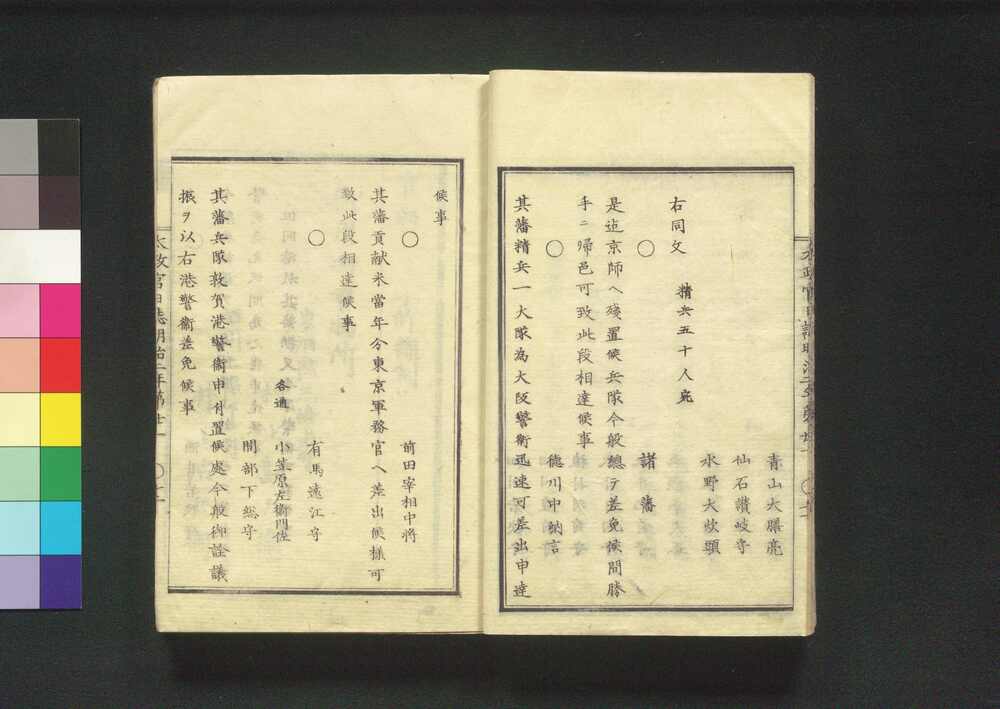 青山大膳亮
仙石讃岐守
水野大炊頭
右同文　精兵五十人宛
〇　諸藩
是迄京師ヘ殘置候兵隊今般總テ差免候間勝
手ニ歸邑可致此段相達候事
〇　德川中納言
其藩精兵一大隊為大阪警衛迅速可差出申達
候事
〇　前田宰相中将
其藩貢獻米當年分東京軍務官ヘ差出候様可
致此段相達候事
〇　有馬遠江守
各通　小笠原左衛門佐
間部下総守
其藩兵隊敦賀港警衛申付置候處今般御詮議
振ヲ以右港警衛差免候事
太政官日誌明治二年第廿一